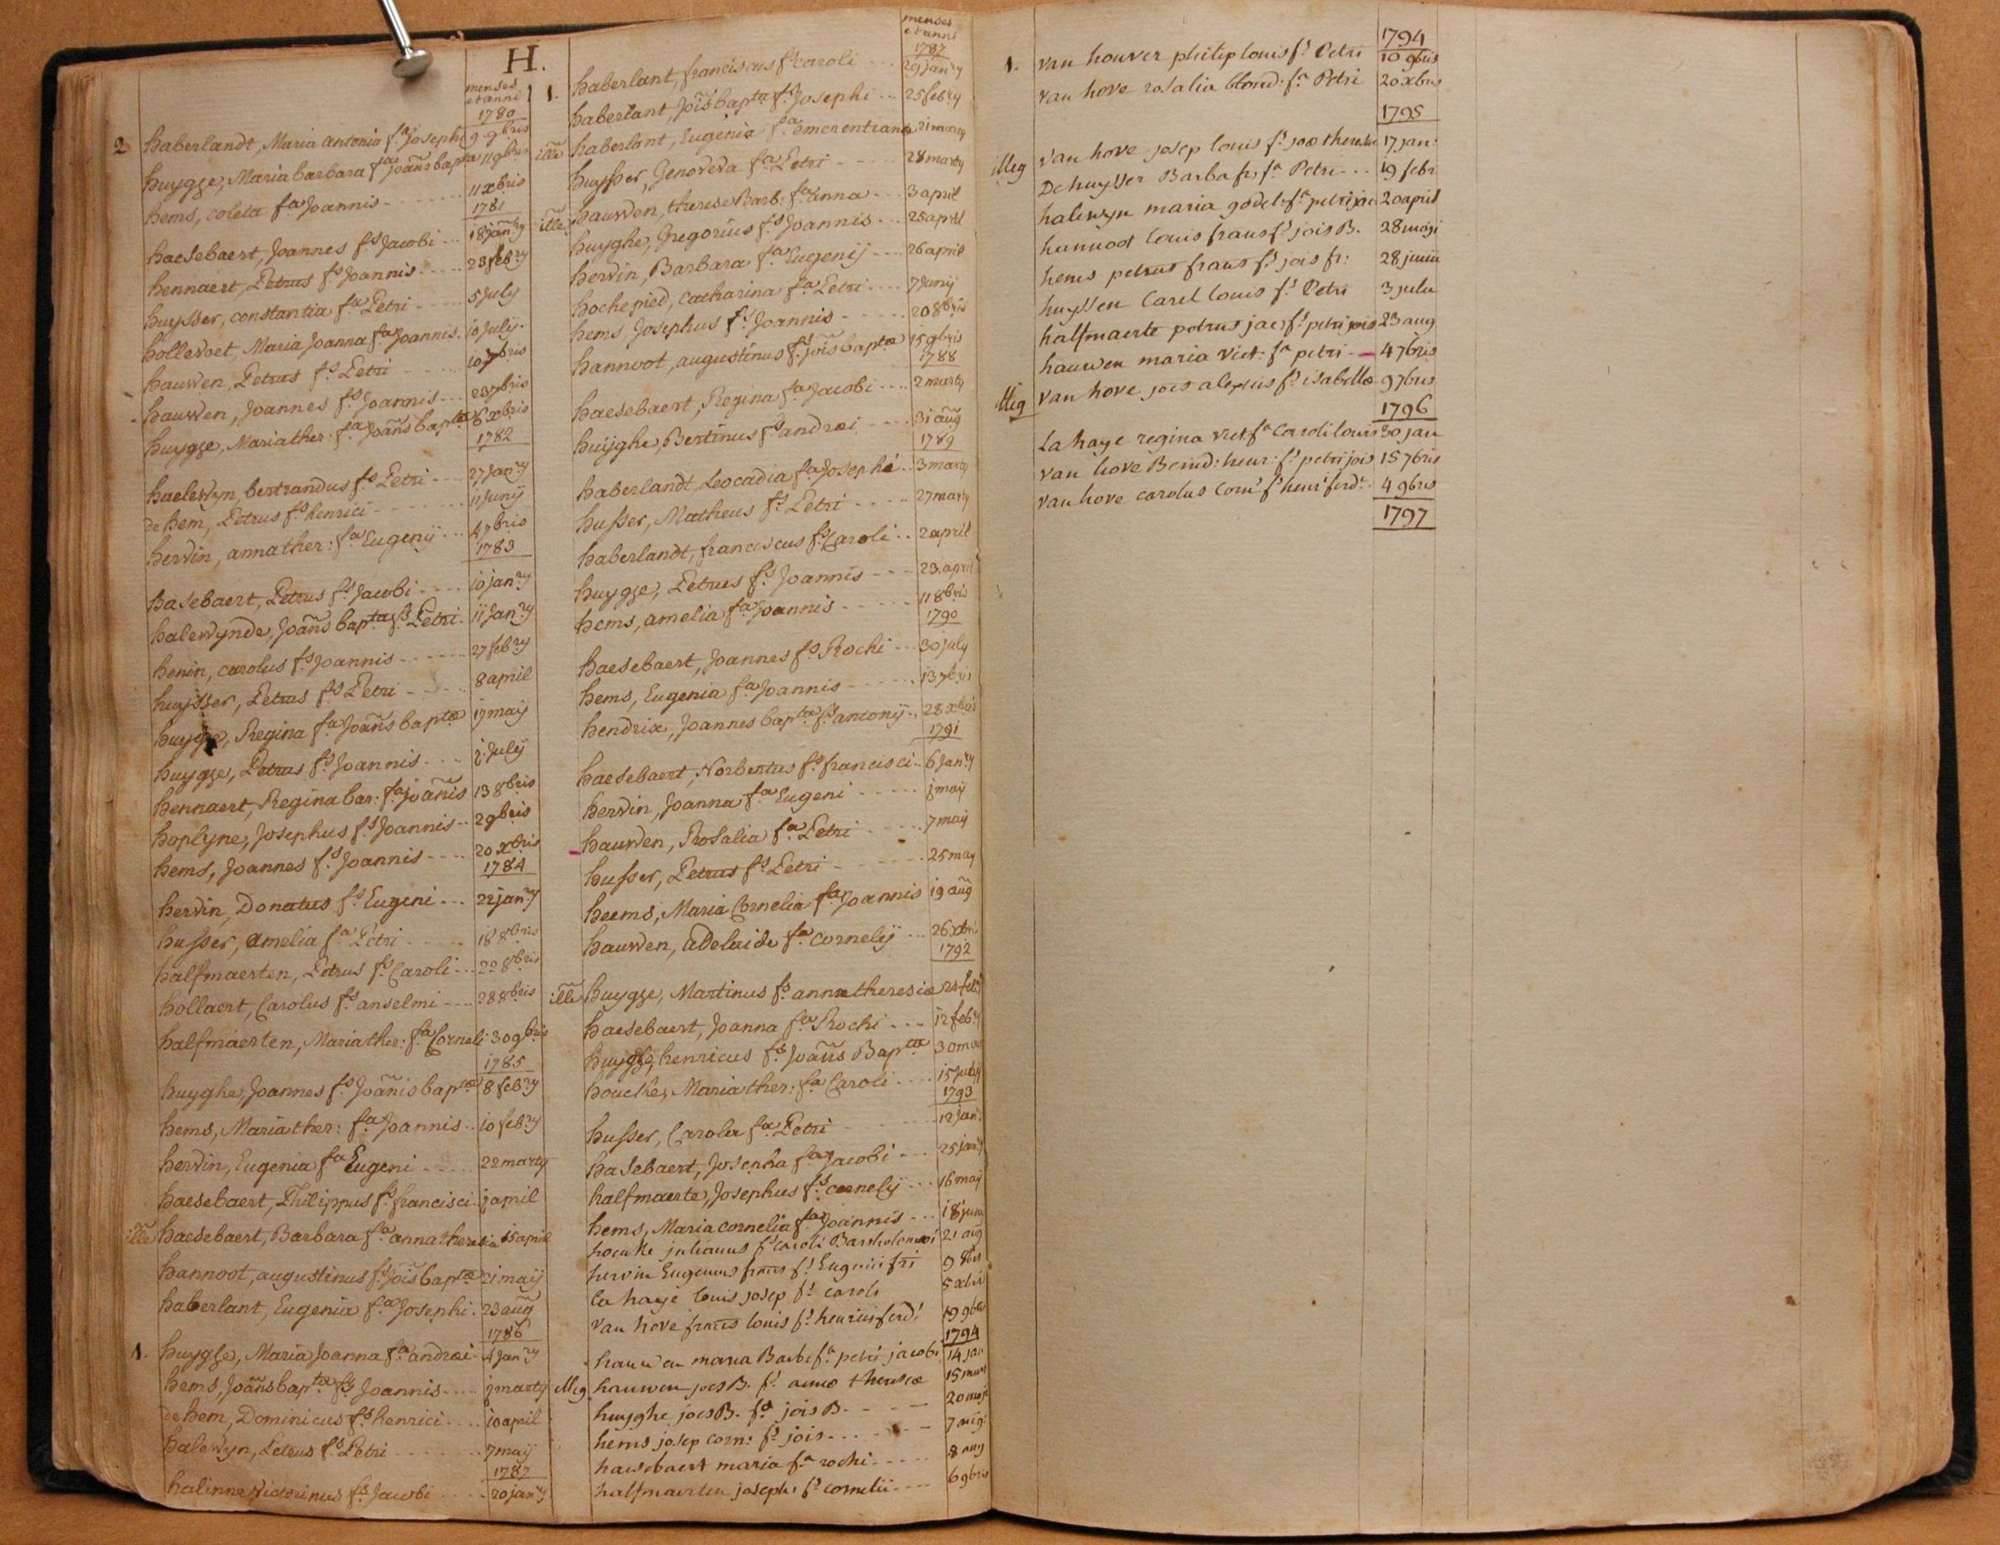 H.
menses
et anni
1780
2 haberlandt, Maria antonia fa Josephi 9 9bris
huygge, Maria barbara fa Joañs bapta 11 9bris
hems, coleta fa Joannis 11 xbris
1781
haesebaert, Joannes fs Jacobi 18 janry
hennaert, Petrus fs Joannis 23 febry
huysser, constantia fa Petri 5 July
hollevoet, Maria Joanna fa Joannis 10 July
hauwen, Petrus fs Petri 10 7bris
hauwen, Joannes fs Joannis 23 7bris
huygge, Maria ther: fa Joañs baptæ 6 xbris
1782
haelewyn, bertrandus fs Petri 27 Janry
de hem, Petrus fs henrici 11 Junij
herwin, anna ther: fa Eugenij 4 7bris
1783
hasebaert, Petrus fs Jacobi 10 janry
halewynde, Joañs bapta fs Petri 11 Janry
henin, carolus fs Joannis 27 febry
huysser, Petrus fs Petri 8 april
huygge, Regina fa Joañs baptæ 17 maij
huygge, Petrus fs Joannis j July
hennaert, Regina bar: fa joañis 13 8bris
hoplyne, Josephus fs Joannis 2 9bris
hems, Joannes fs Joannis 20 xbris
1784
herwin, Donatus fs Eugeni 22 janry
husser, amelia fa Petri 18 8bris
halfmaerten, Petrus fs Caroli 22 8bris
hollaert, Carolus fs anselmi 28 8bris
halfmaerten, Maria ther: fa Corneli 30 9bris
1785
huyghe, Joannes fs Joañis baptæ 8 febry
hems, Maria ther: fa Joannis 10 febry
herwin, Eugenia fa Eugeni 22 marty
haesebaert, Philippus fs francisci j april
ille haesebaert, Barbara fa anna theresia 15 april
hannoot, augustinus fs jois baptæ 21 maij
haberlant, Eugenia fa Josephi 23 aug
1786
1. huygge, Maria Joanna fa andræi 4 Janry
hems, Joañs bapta fs Joannis j marty
de hem, Dominicus fs henrici 10 april
halewyn, Petrus fs Petri 7 maij
1787
halinne victorinus fs Jacobi 20 janry
menses
et anni
1787
1. haberlant, franciscus fs caroli 29 Janry
haberlant, Jois bapta fs Josephi 25 febry
ille haberlant, Eugenia fa emerentiana 21 marty
huysser, Genoveva fa Petri 28 marty
ille hauwen, therese Barb: fa anna 3 april
huyghe, Gregorius fs Joannis 25 april
herwin, Barbara fa Eugenij 26 april
hochepied, catharina fa Petri 7 Junij
hems Josephus fs Joannis 20 8bris
hannoot, augustinus fs jois baptæ 15 9bris
1788
haesebaert, Regina fa Jacobi 2 marty
huijghe, Bertinus fs andræi 31 aug
1789
haberlandt, Leocadia fa Josephi 3 marty
husser, Matheus fs Petri 27 marty
haberlandt, franciscus fs Caroli 2 april
huygge, Petrus fs Joannis 23 april
hems, amelia fa Joannis 11 8bris
1790
haesebaert, Joannes fs Rochi 30 july
hems, Eugenia fa Joannis 13 7bris
hendrix, Joannes bapta fs antonij 28 xbris
1791
haesebaert, Norbertus fs francisci 6 Janry
herwin, Joanna fa Eugeni j maij
hauwen, Rosalia fa Petri 7 maij
husser, Petrus fs Petri 25 may
heems, Maria Cornelia fa Joannis 19 aug
hauwen, adelaide fa cornelij 26 xbri
1792
ille huygge, Martinus fs anna theresiæ
haesebaert, Joanna fa Rochi 12 feb
huygge, henricus fs Joañs Baptæ 30
houcke, Maria ther: fa Caroli 15 july
1793
husser, Carola fa Petri 12 jan
hasebaert, Josepha fa Jacobi 25 jan
halfmaerte, Josephus fs cornelij 16 maij
hems, Maria cornelia fa Joannis 18 juni
houcke julianus fs caroli Bartholomæi 21 aug
herwin Eugenius frans fs Eugenii fri 9 8bis
la haye louis josep fs caroli 5 xbri
van hove frans louis fs henrici ferd: 19 9bris
1794
hauwen maria Barb: fa petri jacobi 14 jan
illeg hauwen joes B. fs annæ theresiæ 15
huyghe joes B. fs jois B. 20
hems josep corn: fs jois 7 aug:
haesebaert maria fa rochi 8 aug
halfmaerten joseph: fs cornelii 6 9bris
1794
1. van houver philip louis fs Petri 10 9bris
van hove rosalia blond: fa Petri 20 xbris
1795
illeg van hove josep louis fs joæ theresiæ 17 jan:
Dehuysser Barba fr: fa Petri 19 febri
halewyn maria godel: fa petri jac 20 april
hannoot louis frans fs jois B. 28 maji
hems petrus frans fs jois fr: 28 junii
huyssen Carel louis fs Petri 3 julii
halfmaerte petrus jac: fs petri jois 23 aug
hauwen maria vict: fa petri 4 7bris
illeg van hove joes alexius fs isabellæ 9 7bris
1796
La haye regina vict fa Caroli louis 30 jan
van hove Bernd: henr: fs petri jois 15 7bris
van hove carolus corn: fs henri ferd: 4 9bris
1797